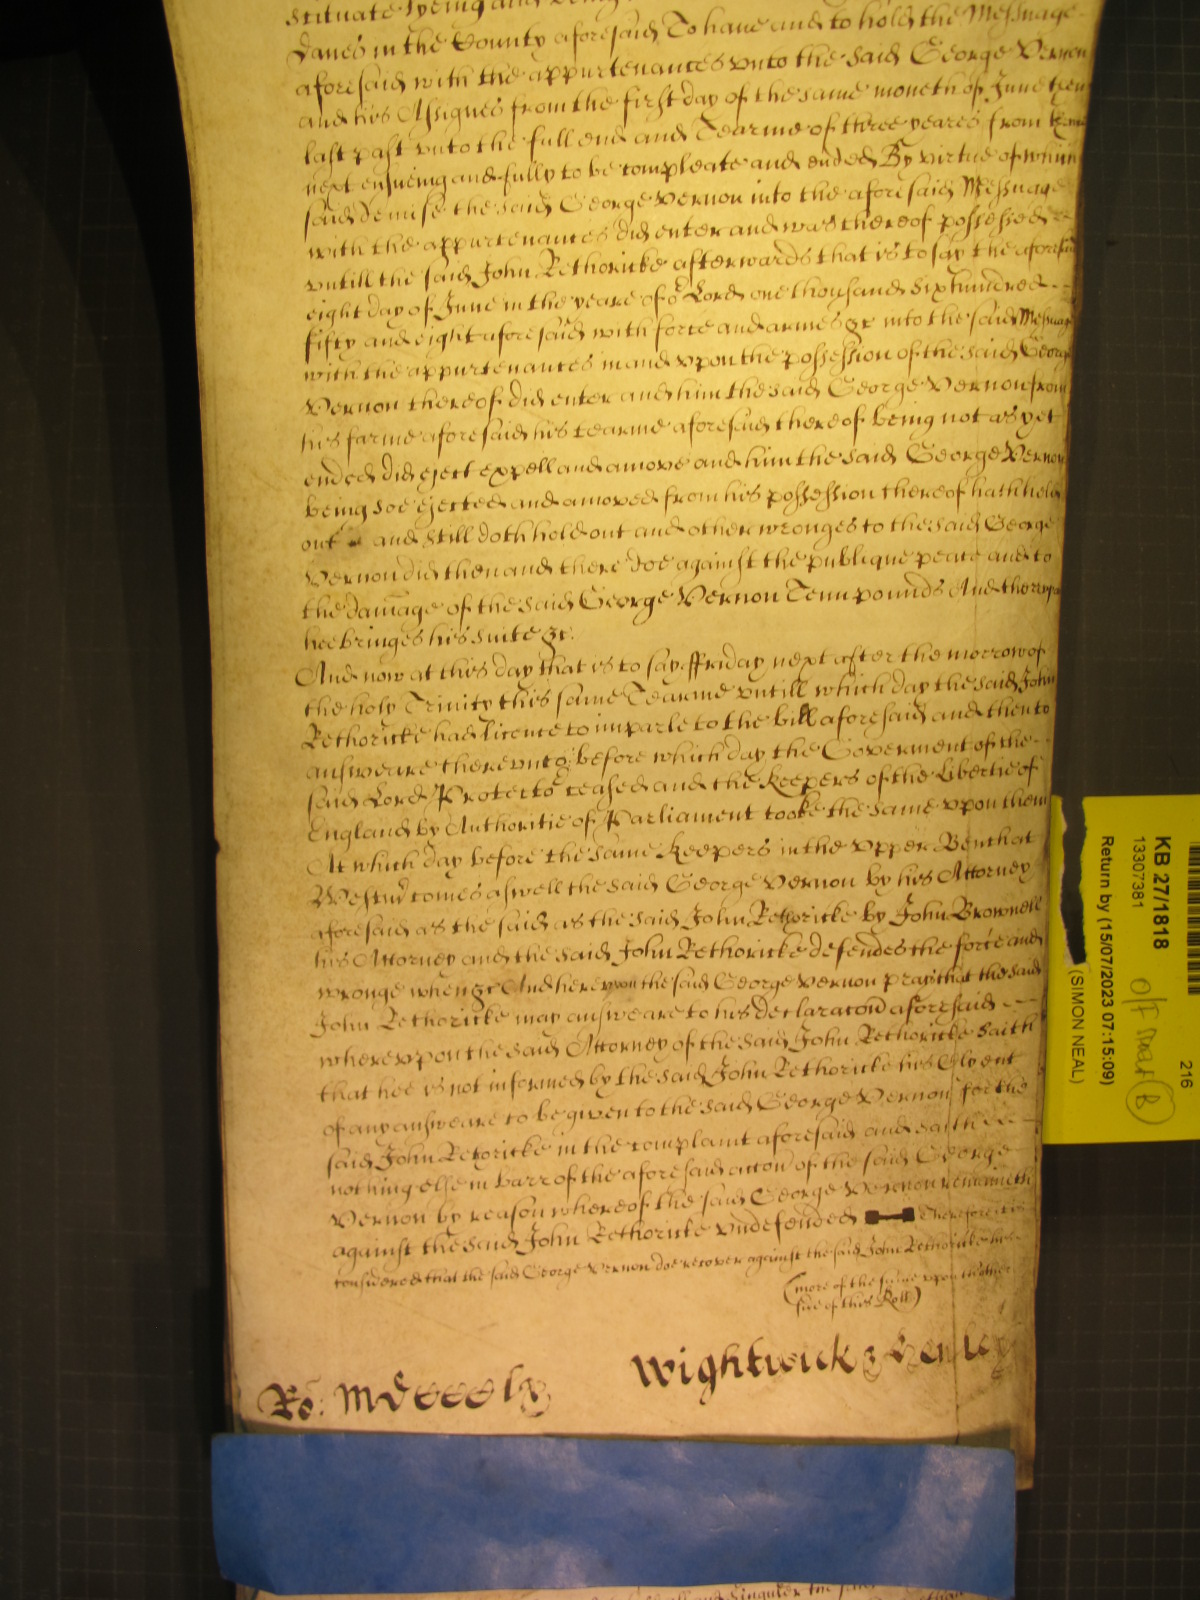 scituate lyeing and being
Danes in the County aforesaid To have and to hold the Messuage
aforesaid with the appurtenances vnto the said George Vernon
and his Assignes from the first day of the same moneth of June then
last past vnto the full end and Tearme of three yeares from thence
next ensueing and fully to be compleate and ended By virtue of which
said demise the said George Vernon into the aforesaid Messuage
with the appurtenances did enter and was thereof possessed
vntill the said John Rethoricke afterwards that is to say the aforesaid
eight day of June in the yeare of or Lord one thousand six hundred
fifty and eight aforesaid with force and armes &c into the said Messuage
with the appurtenances in and vpon the possession of the said George
Vernon thereof did enter and him the said George Vernon from
his farme aforesaid his tearme aforesaid thereof being not as yet
ended did eject expell and amove and him the said George Vernon
being soe ejected and amoved from his possession thereof hath held
out and still doth hold out and other wronges to the said George
Vernon did then and there doe against the publique peace and to
the damage of the said George Vernon Tenn pounds And therevpon
hee bringes his suite &c.
And now at this day that is to say ffriday next after the morrow of
the holy Trinity this same Tearme vntill which day the said John
Rethoricke had licence to imparle to the bill aforesaid and then to
answeare therevnto &c before which day the Goverment of the
said Lord Protector ceased and the Keepers of the Libertie of
England by Authoritie of Parliament tooke the same vpon them
At which day before the same Keepers in the vpper Bench at
Westmr comes aswell the said George Vernon by his Attorney
aforesaid as the said as the said John Rethoricke by John Brownell
his Attorney and the said John Rethoricke defendes the force and
wronge when &c And herevpon the said George Vernon prays that the said
John Rethoricke may answeare to his declaracon aforesaid
wherevpon the said Attorney of the said John Rethoricke saith
that hee is not informed by the said John Rethoricke his Clyent
of any answeare to be given to the said George Vernon for the
said John Rethoricke in the complaint aforesaid and saith
nothing else in barr of the aforesaid accon of the said George
Vernon by reason whereof the said George Vernon remaineth
against the said John Rethoricke vndefended Therefore it is
considered that the said George Vernon doe recover against the said John Rethoricke his
(more of the same vpon the other
side of this Roll)
Wightwick & Henley
Ro: MDCCClx
KB 27/1818
13307381
Return by (15/07/2023 07:15:09)
(SIMON NEAL)
216